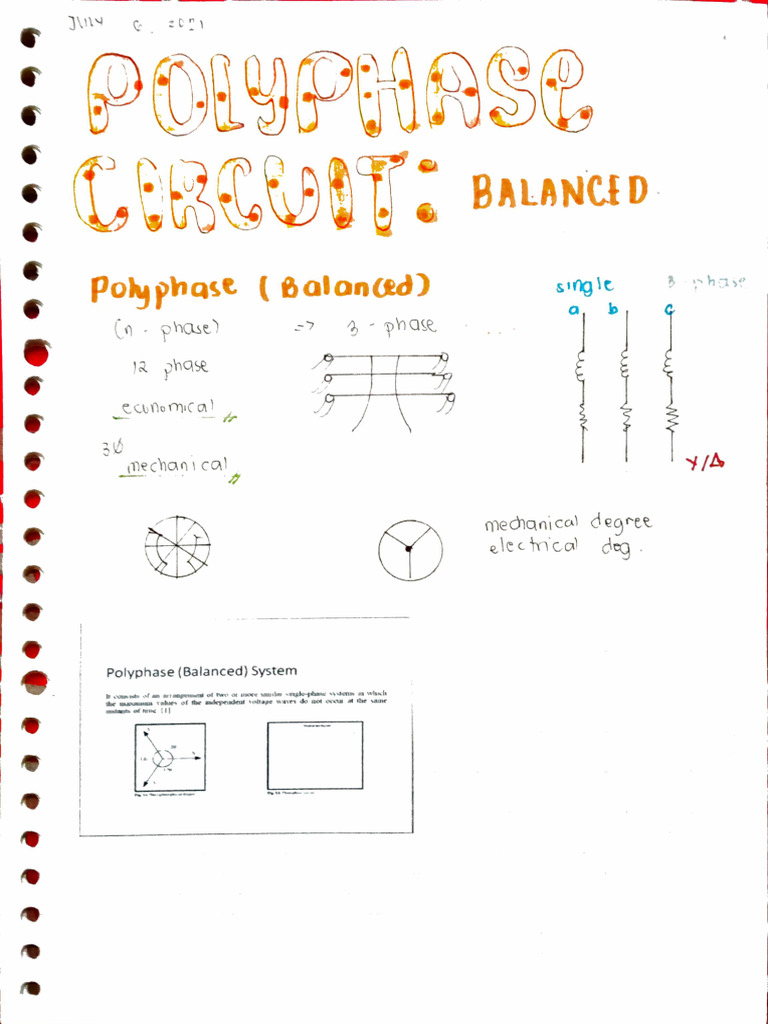 2021
POLYPHASE
CIRCUIT: BALANCED
Polyphase (Balanced)
single 3-phase
a b c
(n - phase) => 3 - phase . . . .
12 phase
economical
3Ø
mechanical
Y/Δ
mechanical degree
electrical deg.
Polyphase (Balanced) System
It consists of an arrangement of two or more similar single-phase systems in which
the maximum values of the independent voltage waves do not occur at the same
instants of time [1]